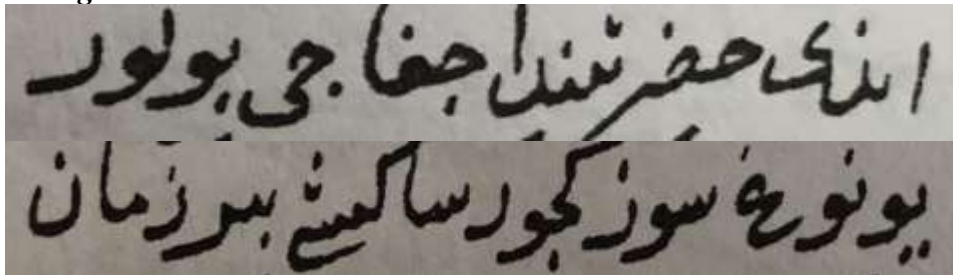 حضرتندا جفا جی بولور
بو نوع سوز کجورسا کیشی بیر زمان